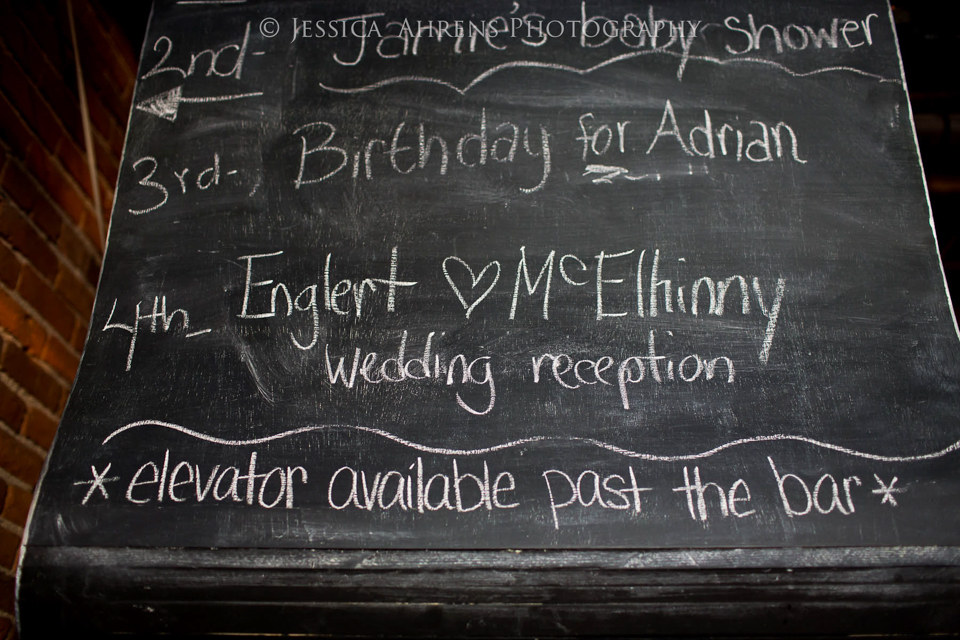 © Jessica Ahrens Photography
2nd- Jamie's baby shower
3rd- Birthday for Adrian
4th- Englert ♡ McElhinny
wedding reception
*elevator available past the bar*